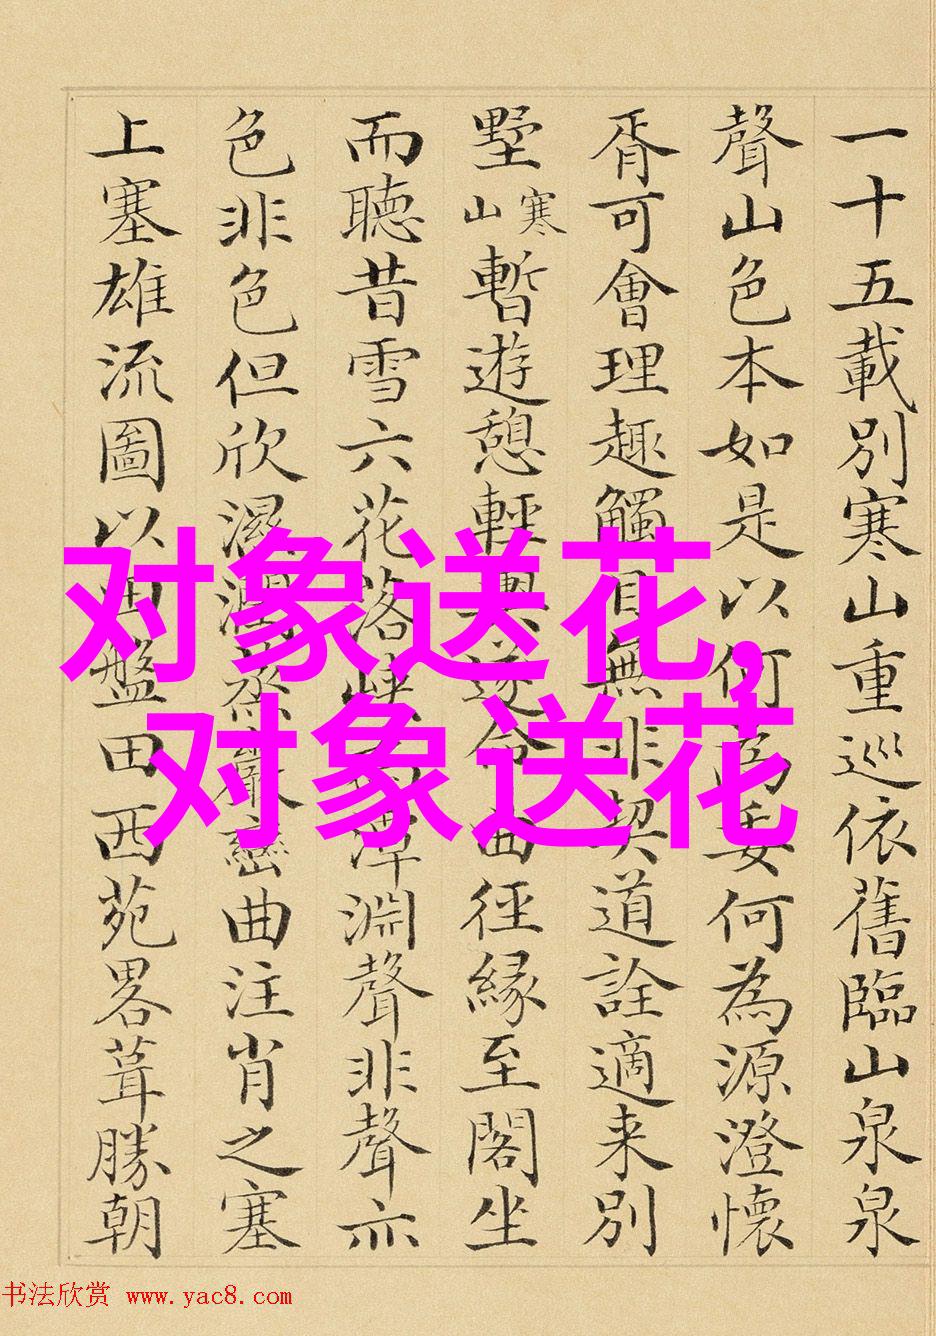 一十五載別寒山重巡依舊臨山泉泉
聲山色本如是以何為委何為源澄懷
胥可會理趣觸目無非契道詮適来別
墅寒山暫遊憩輕輿遂命由徑緣至閣坐
而聽昔雪六花落峡潭淵聲非聲亦
色非色但欣濕潤蒸巖巒曲注肖之塞
上塞雄流圖以田盤田西苑畧葺勝朝
对象送花,
对象送花
书法欣赏 www.yac8.com